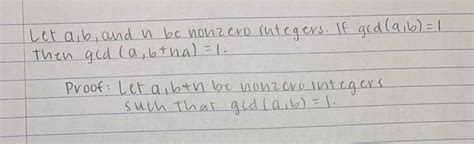 Let a,b, and n be nonzero integers. If gcd(a,b)=1
then gcd(a,b+na)=1.
Proof: Let a,b+n be nonzero integers
such that gcd(a,b)=1.